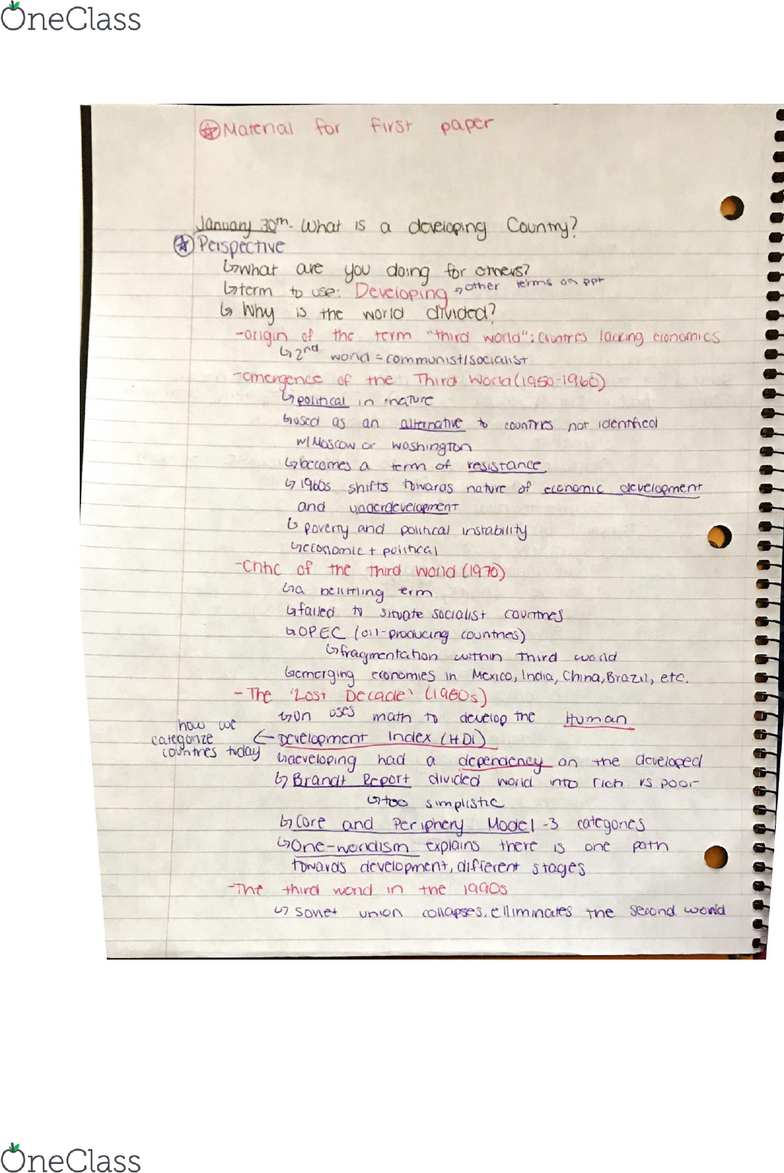 OneClass
Material for first paper
January 30th - What is a developing Country?
Perspective
↳ What are you doing for others?
↳ term to use: Developing → other terms on ppt
↳ Why is the world divided?
- origin of the term "third world": countries lacking economics
↳ 2nd world = communist/socialist
- emergence of the Third World (1950-1960)
↳ political in nature
↳ used as an alternative to countries not identified
w/ Moscow or Washington
↳ becomes a term of resistance
↳ 1960s shifts towards nature of economic development
and underdevelopment
↳ poverty and political instability
↳ economic + political
- Critic of the third world (1970)
↳ a belittling term
↳ failed to situate socialist countries
↳ OPEC (oil-producing countries)
↳ fragmentation within third world
↳ emerging economies in Mexico, India, China, Brazil, etc.
- The 'Lost Decade' (1980s)
↳ UN uses math to develop the Human
Development Index (HDI)
how we
categorize
countries today
←
↳ developing had a dependency on the developed
↳ Brandt Report divided world into rich vs poor
↳ too simplistic
↳ Core and Periphery Model - 3 categories
↳ One-worldism explains there is one path
towards development, different stages
- The third world in the 1990s
↳ Soviet union collapses, elliminates the second world
OneClass